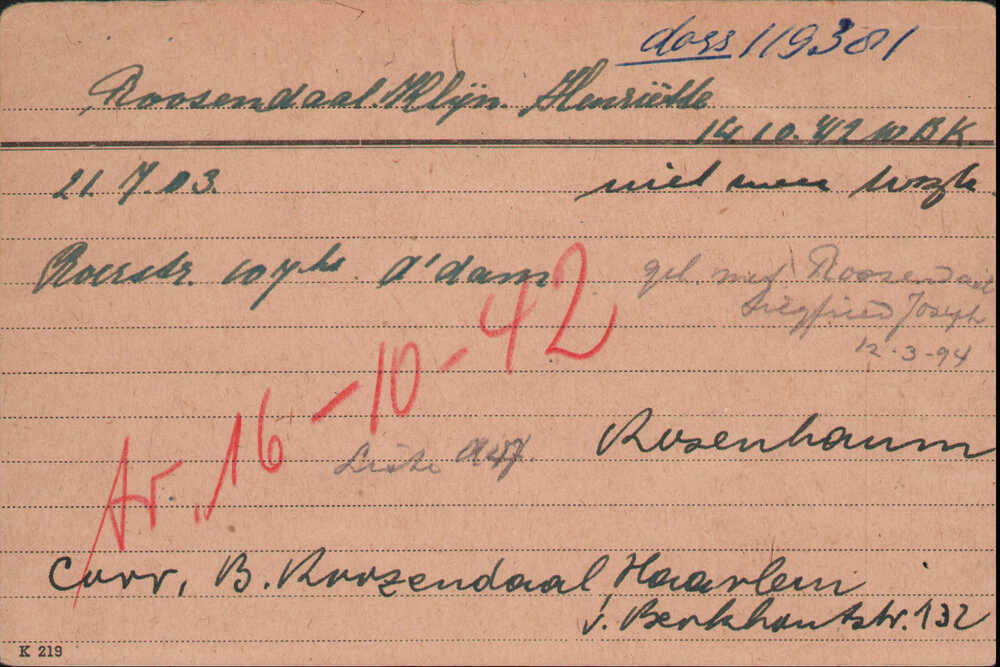 doss 119381
Roosendaal. Klijn. Henriëtte
14 10. 42 w B K.
21. 7. 03. niet meer
Roerstr. 107 hs. A'dam geh. met Roosendaal
Siegfried Joseph
12-3-94
tr. 16-10-42
Rosenbaum
Liste A 47.
Corr, B. Roozendaal, Haarlem
v. Berkhoutstr. 132
K 219